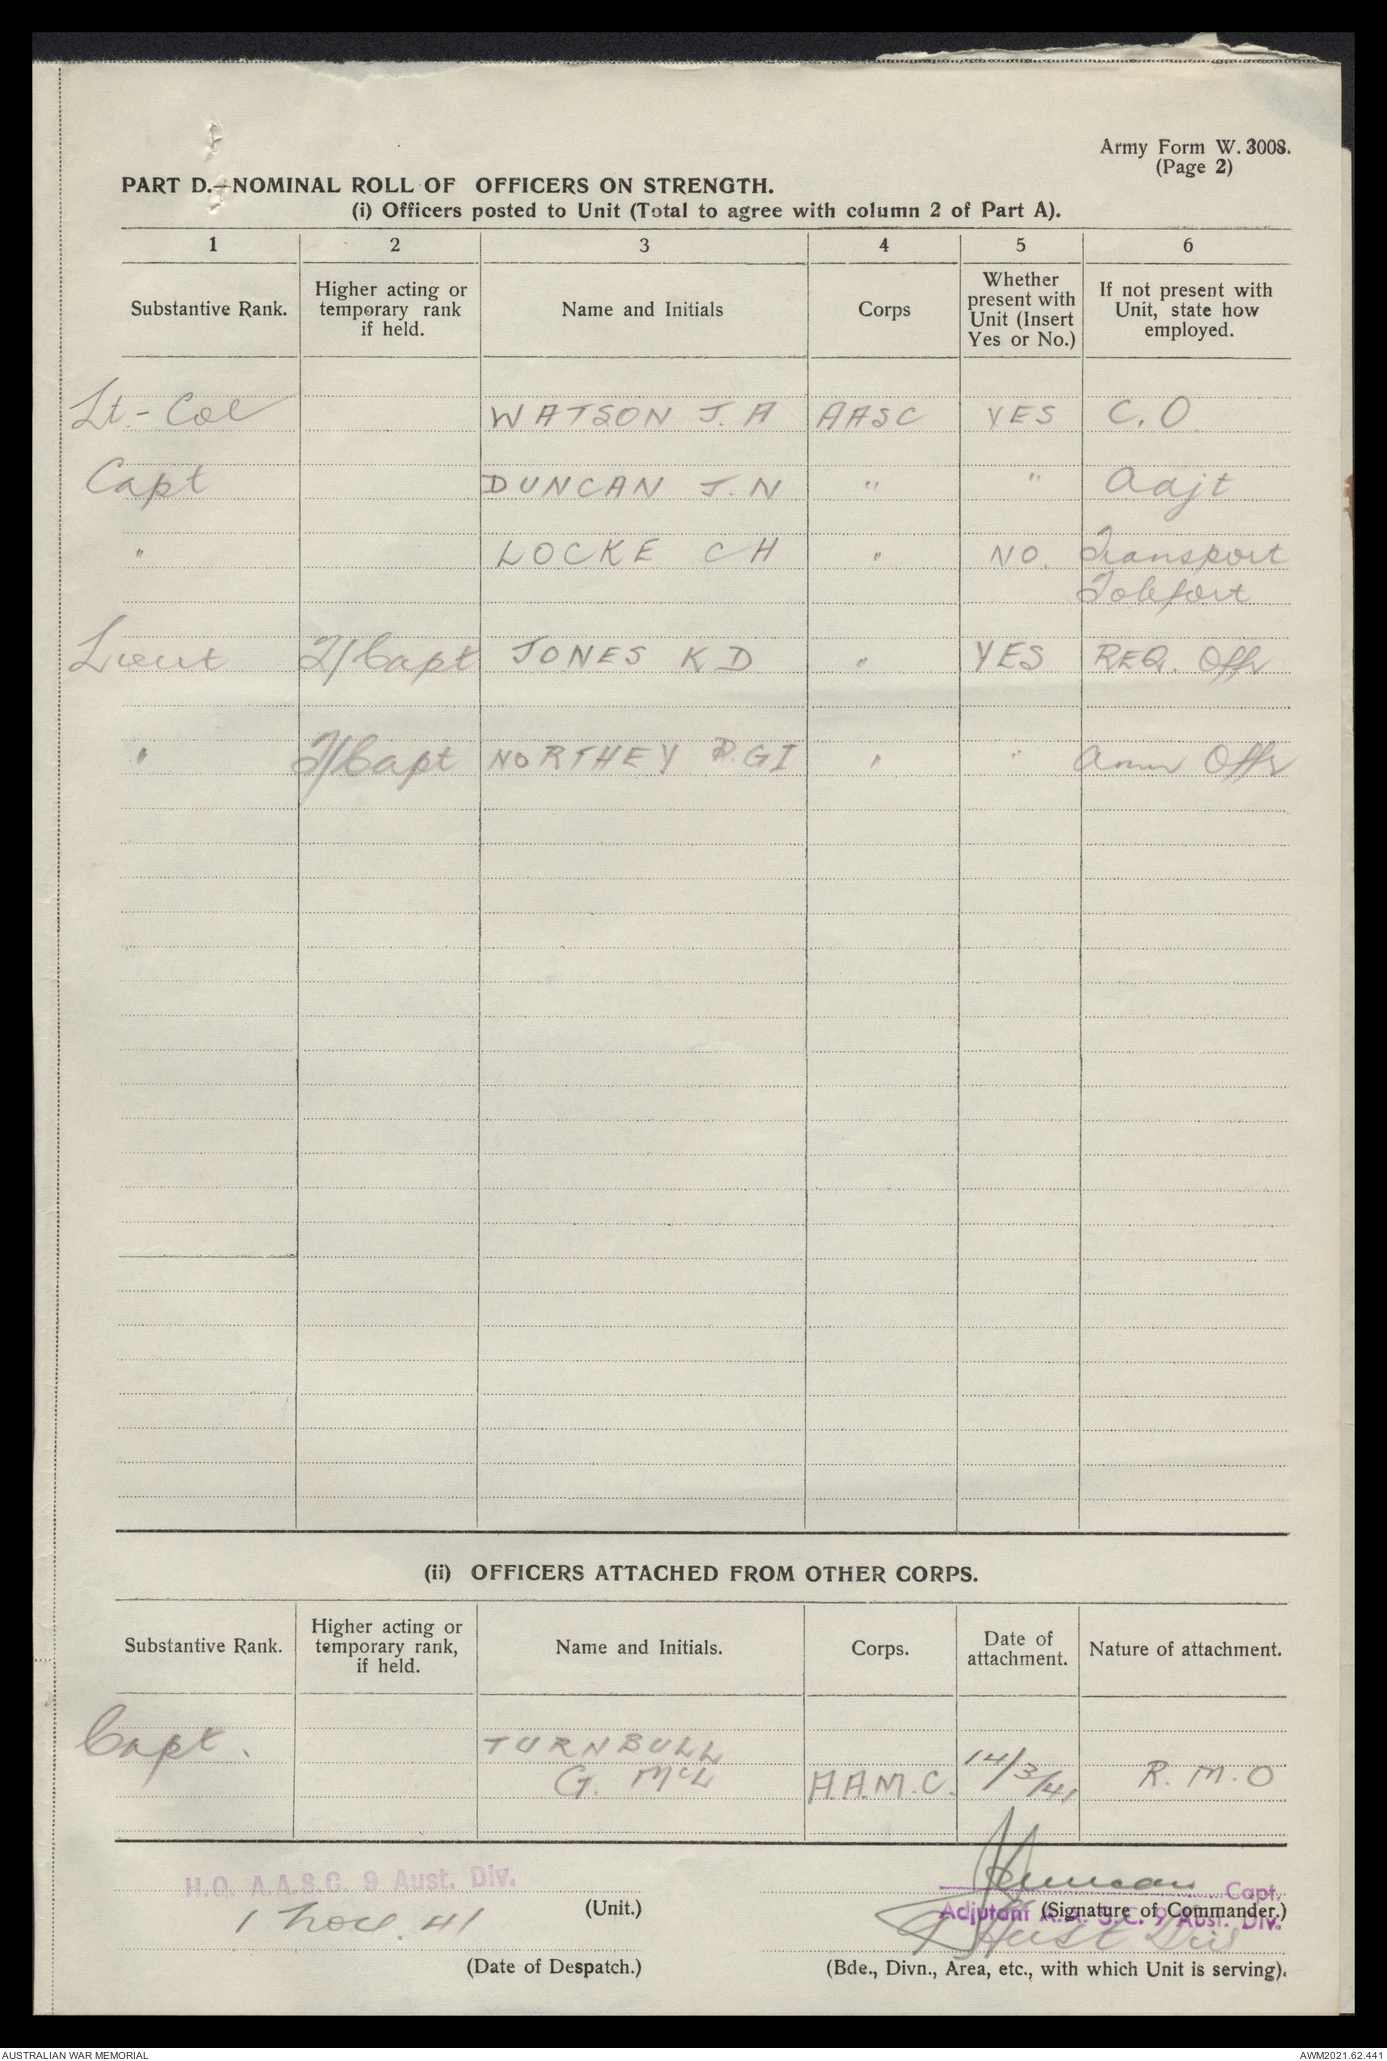 Army Form W. 3008.
(Page 2)
PART D.—NOMINAL ROLL OF OFFICERS ON STRENGTH.
(i) Officers posted to Unit (Total to agree with column 2 of Part A).
1 2 3 4 5 6
Substantive Rank. Higher acting or temporary rank if held. Name and Initials Corps Whether present with Unit (Insert Yes or No.) If not present with Unit, state how employed.
Lt-Col WATSON J.A AASC YES C.O
Capt DUNCAN J.N " " Adjt
" LOCKE C H " NO. Transport
Lieut T/Capt JONES K D " YES REQ. Offr
" T/Capt NORTHEY R.G I " " Amn Offr
(ii) OFFICERS ATTACHED FROM OTHER CORPS.
Substantive Rank. Higher acting or temporary rank, if held. Name and Initials. Corps. Date of attachment. Nature of attachment.
Capt. TURNBULL
G. McL A.A.M.C. 14/3/41 R.M.O
H.Q. A.A.S.C. 9 Aust. Div.
(Unit.)
JDuncan Capt.
Adjutant A.A.S.C. 9 Aust. Div.
(Signature of Commander.)
1 Nov. 41
(Date of Despatch.)
9 Aust Div
(Bde., Divn., Area, etc., with which Unit is serving).
AUSTRALIAN WAR MEMORIAL
AWM2021.62.441